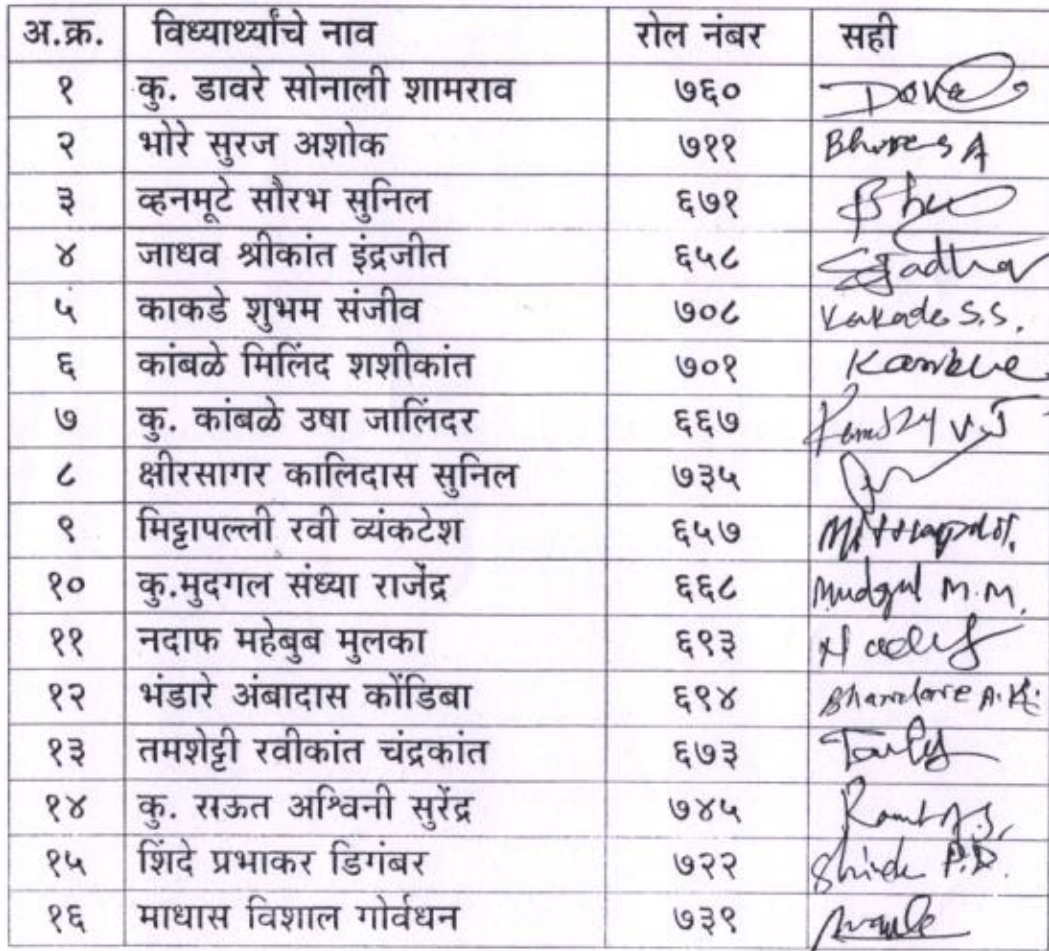 अ.क्र. विध्यार्थ्यांचे नाव रोल नंबर सही
१ कु. डावरे सोनाली शामराव ७६०
२ भोरे सुरज अशोक ७११ Bhore S A
३ व्हनमूटे सौरभ सुनिल ६७१
४ जाधव श्रीकांत इंद्रजीत ६५८
५ काकडे शुभम संजीव ७०८ Kakade S.S.
६ कांबळे मिलिंद शशीकांत ७०१ Kamble
७ कु. कांबळे उषा जालिंदर ६६७
८ क्षीरसागर कालिदास सुनिल ७३५
९ मिट्टापल्ली रवी व्यंकटेश ६५७
१० कु.मुदगल संध्या राजेंद्र ६६८ Mudgal M.M.
११ नदाफ महेबुब मुलका ६९३
१२ भंडारे अंबादास कोंडिबा ६९४ Bhandare A.K.
१३ तमशेट्टी रवीकांत चंद्रकांत ६७३
१४ कु. राऊत अश्विनी सुरेंद्र ७४५
१५ शिंदे प्रभाकर डिगंबर ७२२ Shinde P.D.
१६ माधास विशाल गोर्वधन ७३९